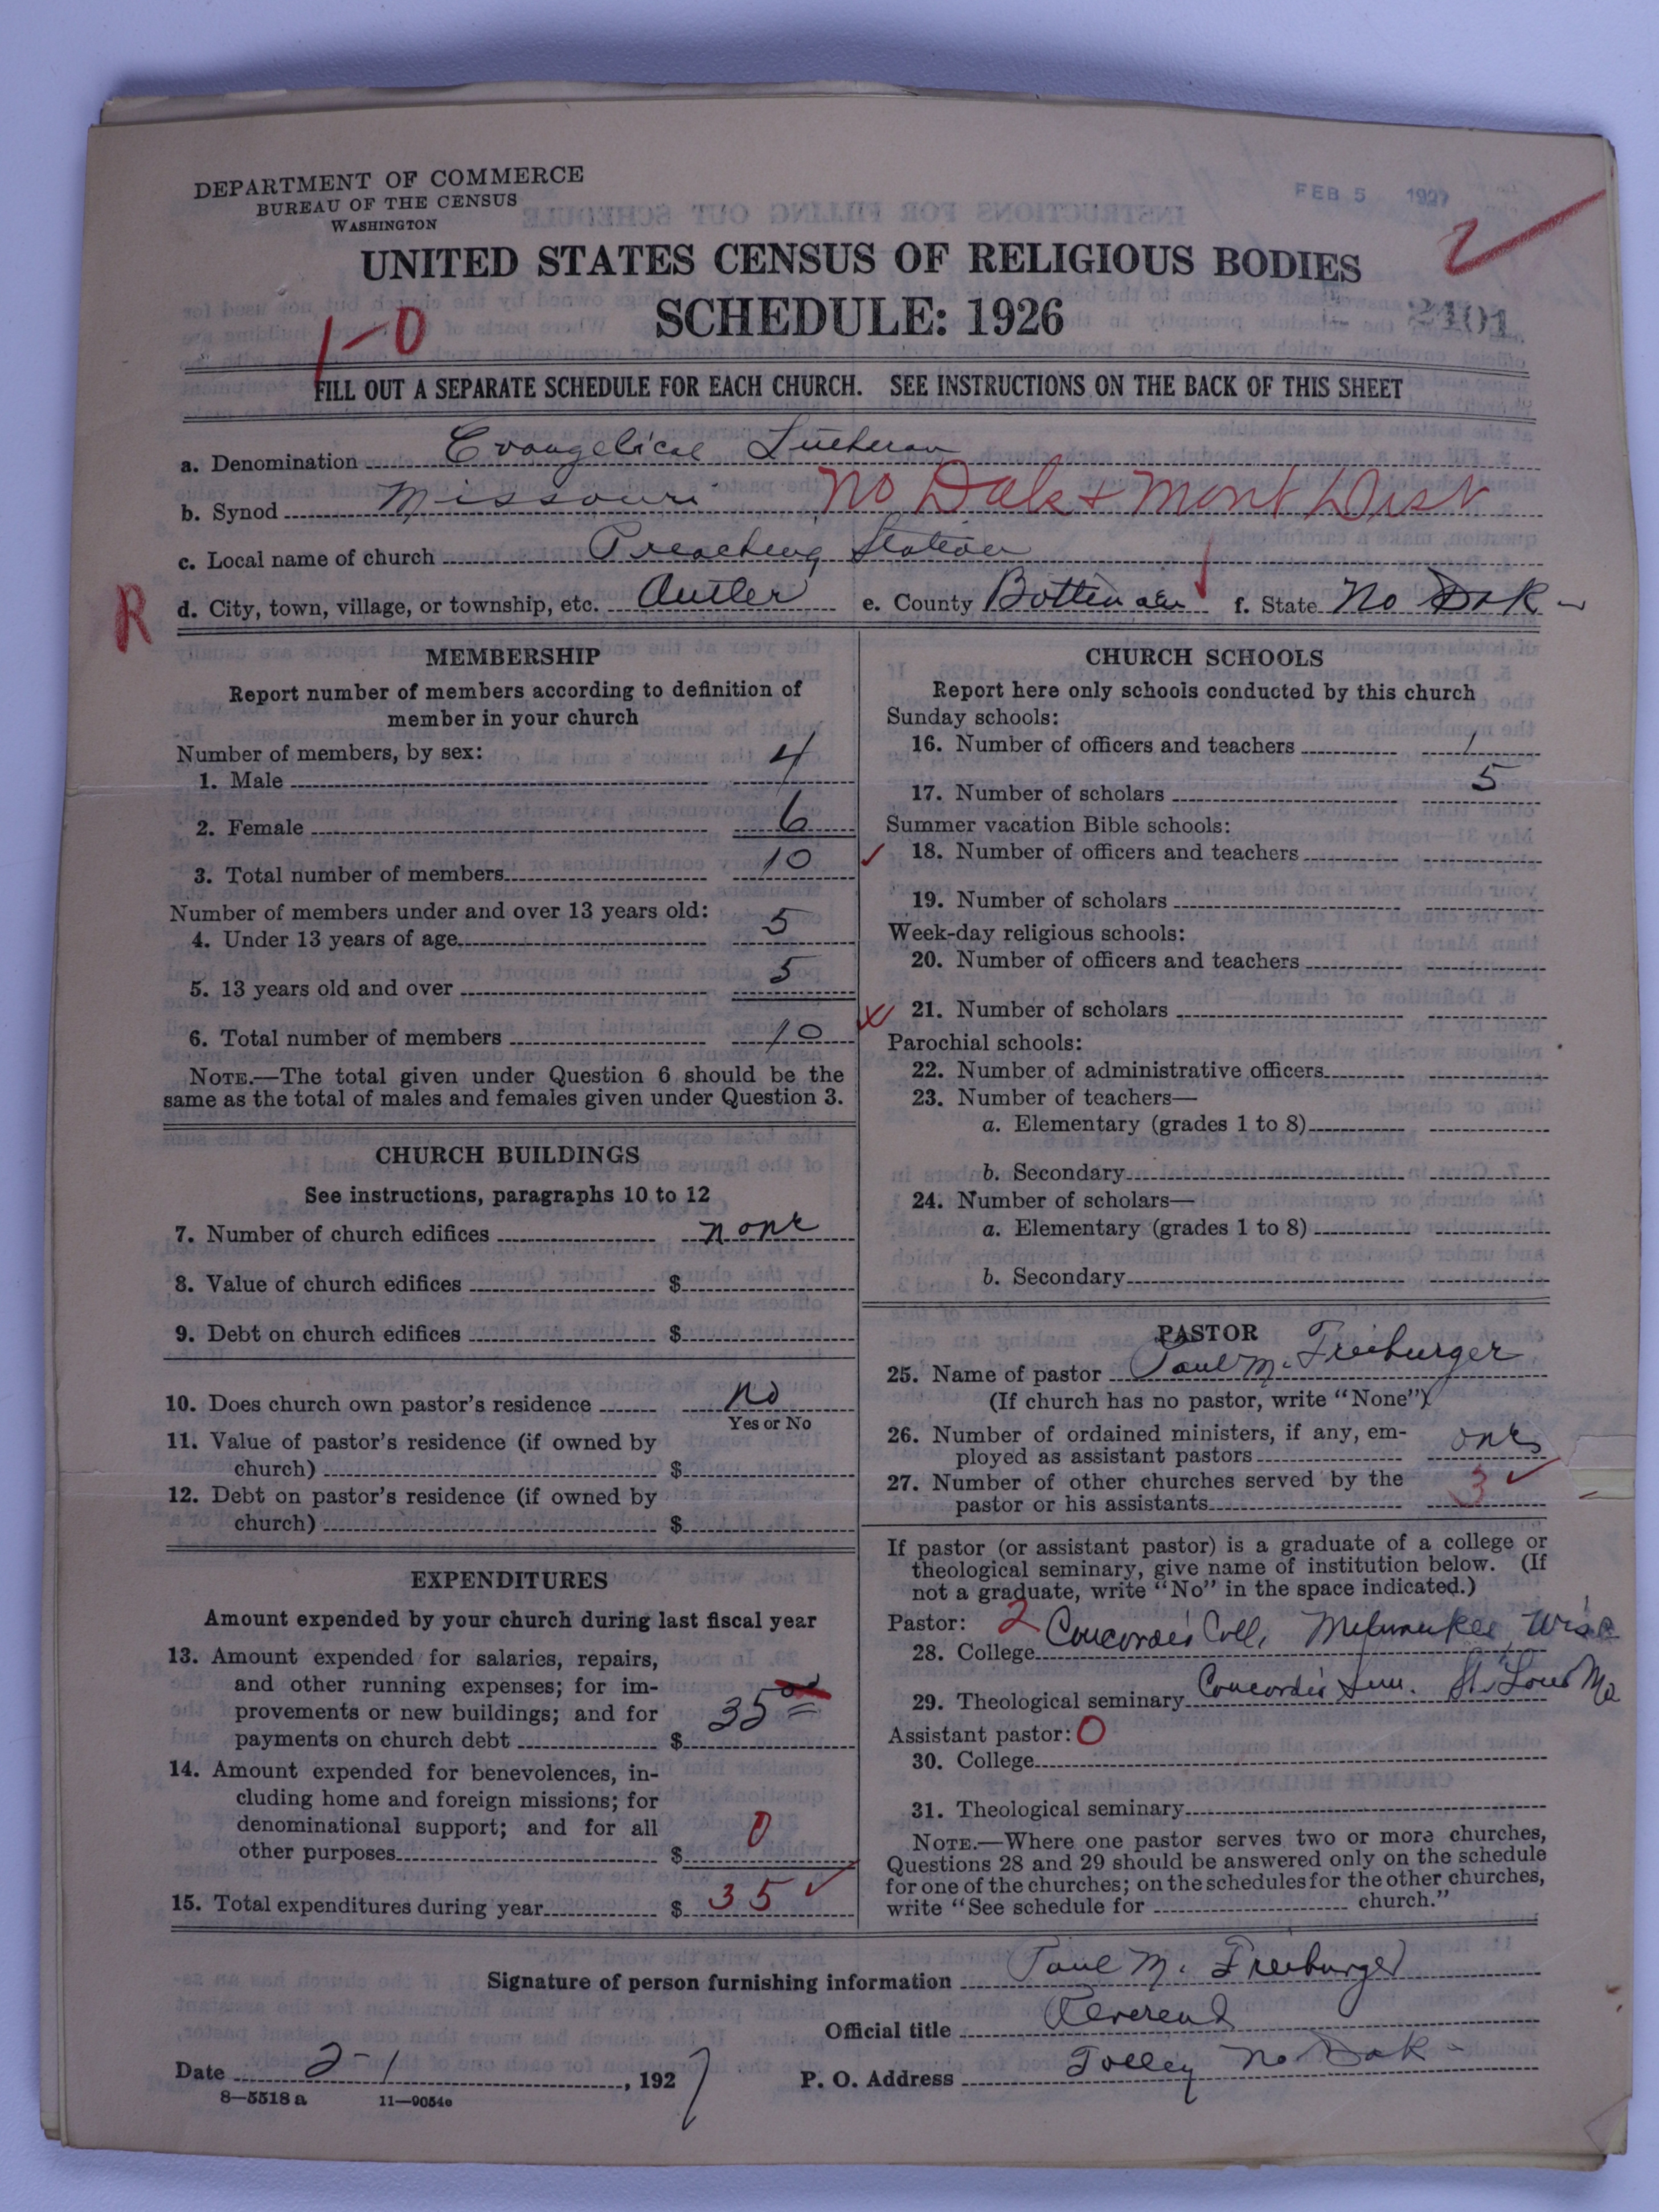 DEPARTMENT OF COMMERCE
BUREAU OF THE CENSUS
WASHINGTON
FEB 5 1927
UNITED STATES CENSUS OF RELIGIOUS BODIES
SCHEDULE: 1926
1-0
2101
FILL OUT A SEPARATE SCHEDULE FOR EACH CHURCH. SEE INSTRUCTIONS ON THE BACK OF THIS SHEET
a. Denomination Evangelical Lutheran
b. Synod Missouri No Dak & Mont Dist
c. Local name of church Preaching Station
R
d. City, town, village, or township, etc. Antler e. County Bottineau f. State No Dak
MEMBERSHIP
Report number of members according to definition of
member in your church
Number of members, by sex:
1. Male 4
2. Female 6
3. Total number of members 10
Number of members under and over 13 years old:
4. Under 13 years of age 5
5. 13 years old and over 5
6. Total number of members 10
NOTE.—The total given under Question 6 should be the
same as the total of males and females given under Question 3.
CHURCH BUILDINGS
See instructions, paragraphs 10 to 12
7. Number of church edifices none
8. Value of church edifices $
9. Debt on church edifices $
10. Does church own pastor's residence no
Yes or No
11. Value of pastor's residence (if owned by
church) $
12. Debt on pastor's residence (if owned by
church) $
EXPENDITURES
Amount expended by your church during last fiscal year
13. Amount expended for salaries, repairs,
and other running expenses; for im-
provements or new buildings; and for
payments on church debt $ 35 00
14. Amount expended for benevolences, in-
cluding home and foreign missions; for
denominational support; and for all
other purposes $ 0
15. Total expenditures during year $ 35 ✓
CHURCH SCHOOLS
Report here only schools conducted by this church
Sunday schools:
16. Number of officers and teachers 1
17. Number of scholars 5
Summer vacation Bible schools:
✓ 18. Number of officers and teachers
19. Number of scholars
Week-day religious schools:
20. Number of officers and teachers
x 21. Number of scholars
Parochial schools:
22. Number of administrative officers
23. Number of teachers—
a. Elementary (grades 1 to 8)
b. Secondary
24. Number of scholars—
a. Elementary (grades 1 to 8)
b. Secondary
PASTOR
25. Name of pastor Paul M. Freiburger
(If church has no pastor, write "None")
26. Number of ordained ministers, if any, em-
ployed as assistant pastors one
27. Number of other churches served by the
pastor or his assistants 3 ✓
If pastor (or assistant pastor) is a graduate of a college or
theological seminary, give name of institution below. (If
not a graduate, write "No" in the space indicated.)
Pastor: 2
28. College Concordia Coll. Milwaukee, Wisc
29. Theological seminary Concordia Sem. St. Louis Mo
Assistant pastor: 0
30. College
31. Theological seminary
NOTE.—Where one pastor serves two or more churches,
Questions 28 and 29 should be answered only on the schedule
for one of the churches; on the schedules for the other churches,
write "See schedule for church."
Signature of person furnishing information Paul M. Freiburger
Official title Reverend
Date 2-1, 1927
P. O. Address Tolley No Dak
8—5518 a 11—9054e